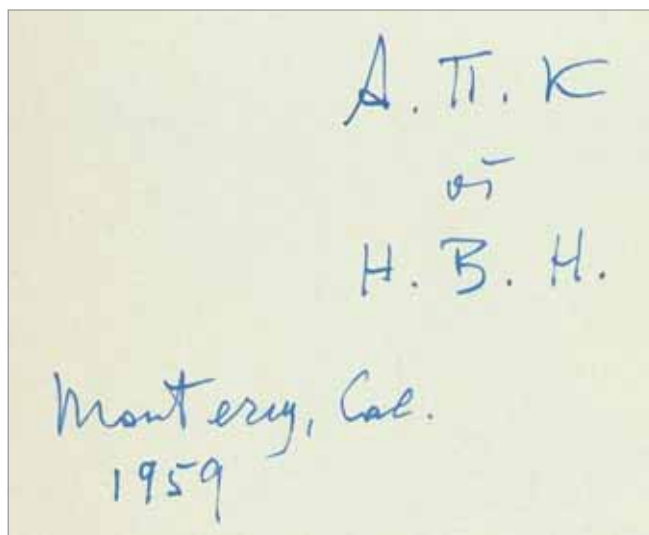 А. П. К
от
Н. В. Н.
Monterey, Cal.
1959